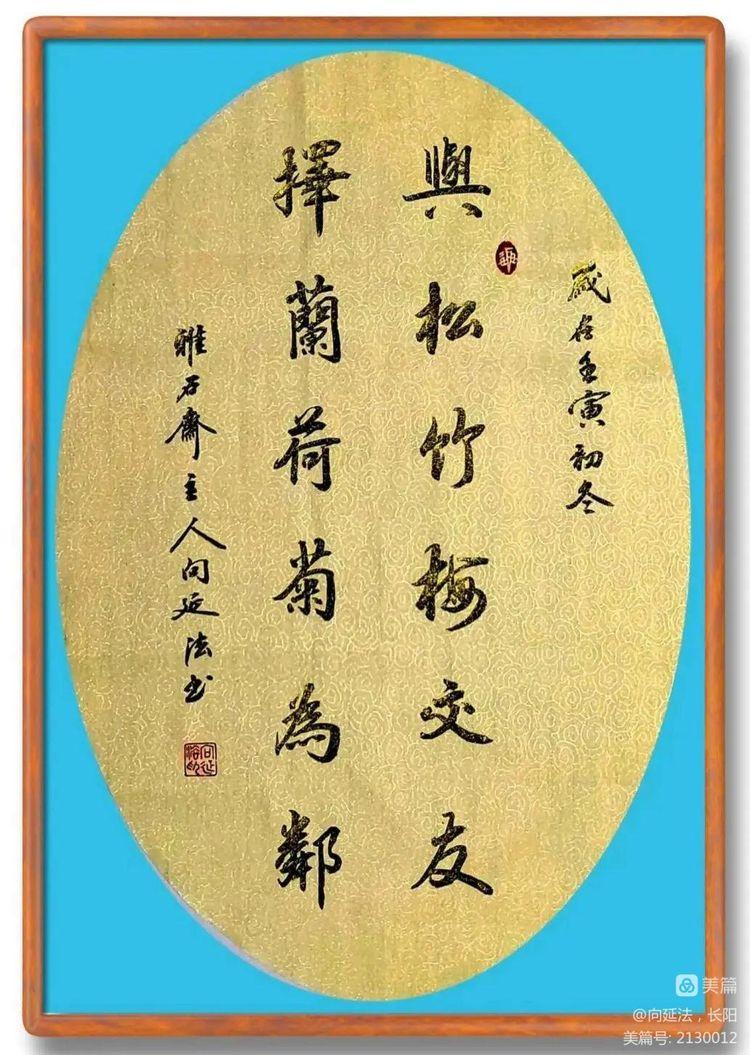 歲在壬寅初冬
與松竹梅交友
擇蘭荷菊為鄰
雅石齋主人向延法书
向延法印
美篇
@向延法，长阳
美篇号: 2130012